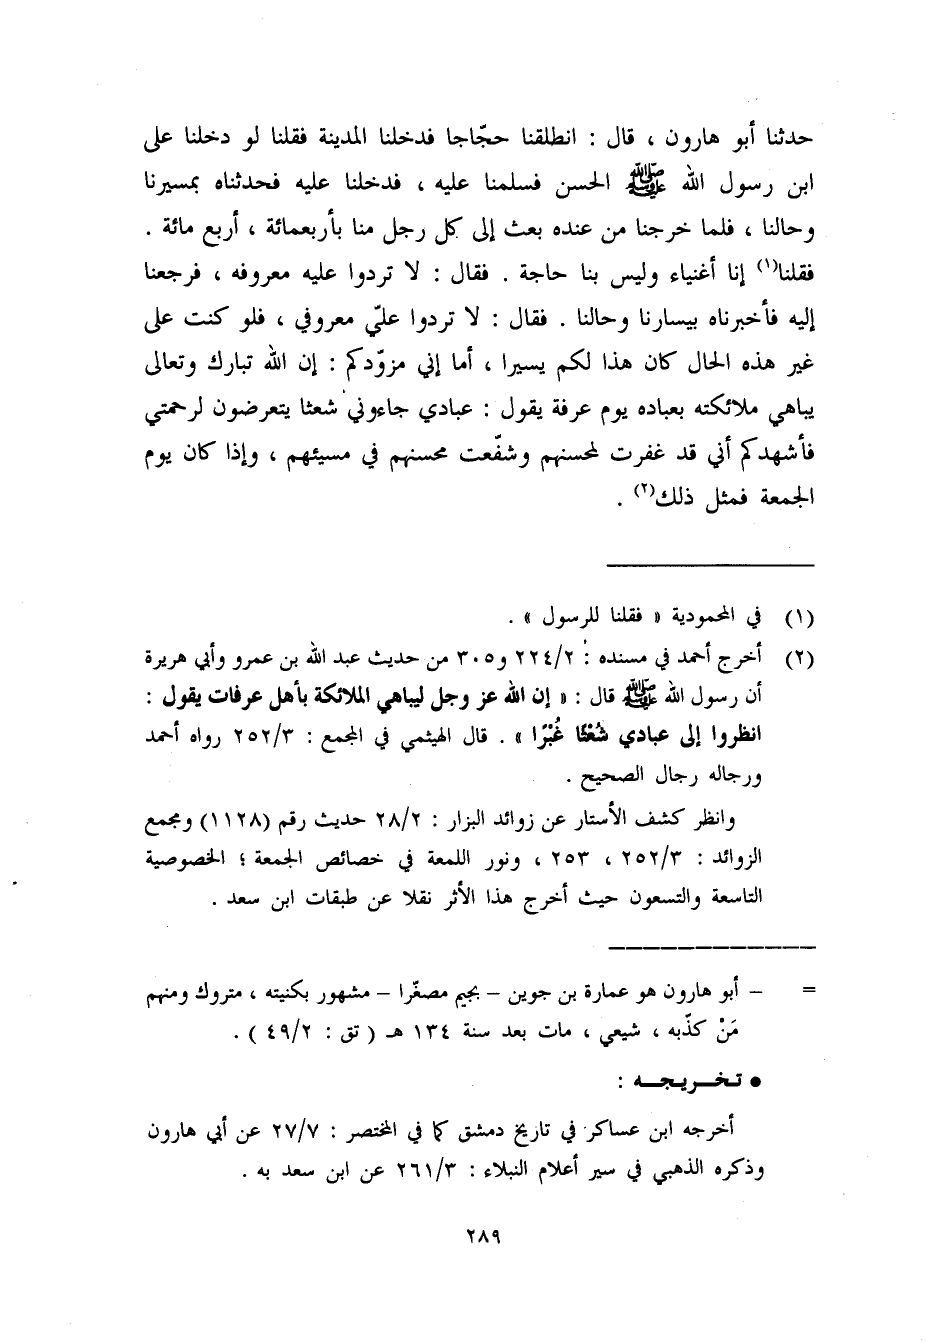 حدثنا أبو هارون ، قال : انطلقنا حجّاجا فدخلنا المدينة فقلنا لو دخلنا على
ابن رسول الله ﷺ الحسن فسلمنا عليه ، فدخلنا عليه فحدثناه بمسيرنا
وحالنا ، فلما خرجنا من عنده بعث إلى كل رجل منا بأربعمائة ، أربع مائة .
فقلنا(١) إنا أغنياء وليس بنا حاجة . فقال : لا تردوا عليه معروفه ، فرجعنا
إليه فأخبرناه بيسارنا وحالنا . فقال : لا تردوا عليّ معروفي ، فلو كنت على
غير هذه الحال كان هذا لكم يسيرا ، أما إني مزوّدكم : إن الله تبارك وتعالى
يباهي ملائكته بعباده يوم عرفة يقول : عبادي جاءوني شعثا يتعرضون لرحمتي
فأشهدكم أني قد غفرت لمحسنهم وشفّعت محسنهم في مسيئهم ، وإذا كان يوم
الجمعة فمثل ذلك(٢) .
(١) في المحمودية « فقلنا للرسول » .
(٢) أخرج أحمد في مسنده : ٢٢٤/٢ و٣٠٥ من حديث عبد الله بن عمرو وأبي هريرة
أن رسول الله ﷺ قال : « إن الله عز وجل ليباهي الملائكة بأهل عرفات يقول :
انظروا إلى عبادي شُعْثًا غُبْرًا » . قال الهيثمي في المجمع : ٢٥٢/٣ رواه أحمد
ورجاله رجال الصحيح .
وانظر كشف الأستار عن زوائد البزار : ٢٨/٢ حديث رقم (١١٢٨) ومجمع
الزوائد : ٢٥٢/٣ ، ٢٥٣ ، ونور اللمعة في خصائص الجمعة ؛ الخصوصية
التاسعة والتسعون حيث أخرج هذا الأثر نقلا عن طبقات ابن سعد .
= – أبو هارون هو عمارة بن جوين – بجيم مصغّرا – مشهور بكنيته ، متروك ومنهم
مَنْ كذّبه ، شيعي ، مات بعد سنة ١٣٤ هـ ( تق : ٤٩/٢ ) .
• تـخــريـجــه :
أخرجه ابن عساكر في تاريخ دمشق كما في المختصر : ٢٧/٧ عن أبي هارون
وذكره الذهبي في سير أعلام النبلاء : ٢٦١/٣ عن ابن سعد به .
٢٨٩